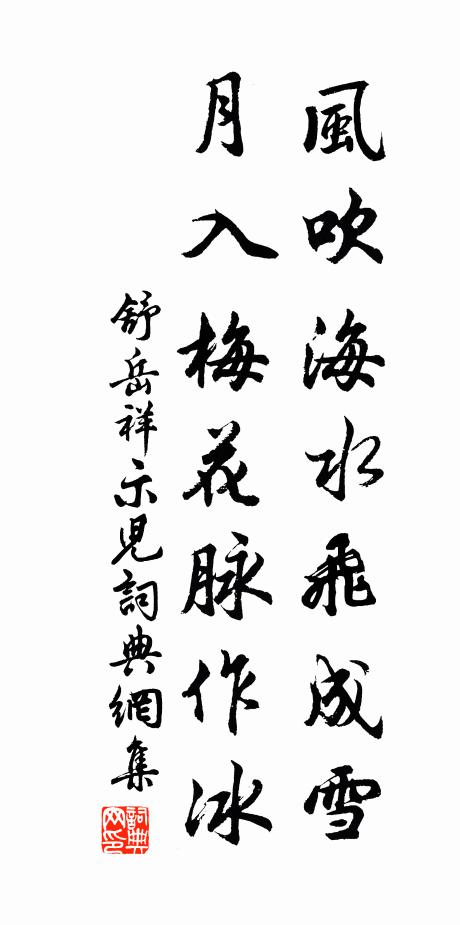 風吹海水飛成雪
月入梅花脉作冰
舒岳祥示兒詞典網集
詞典网印